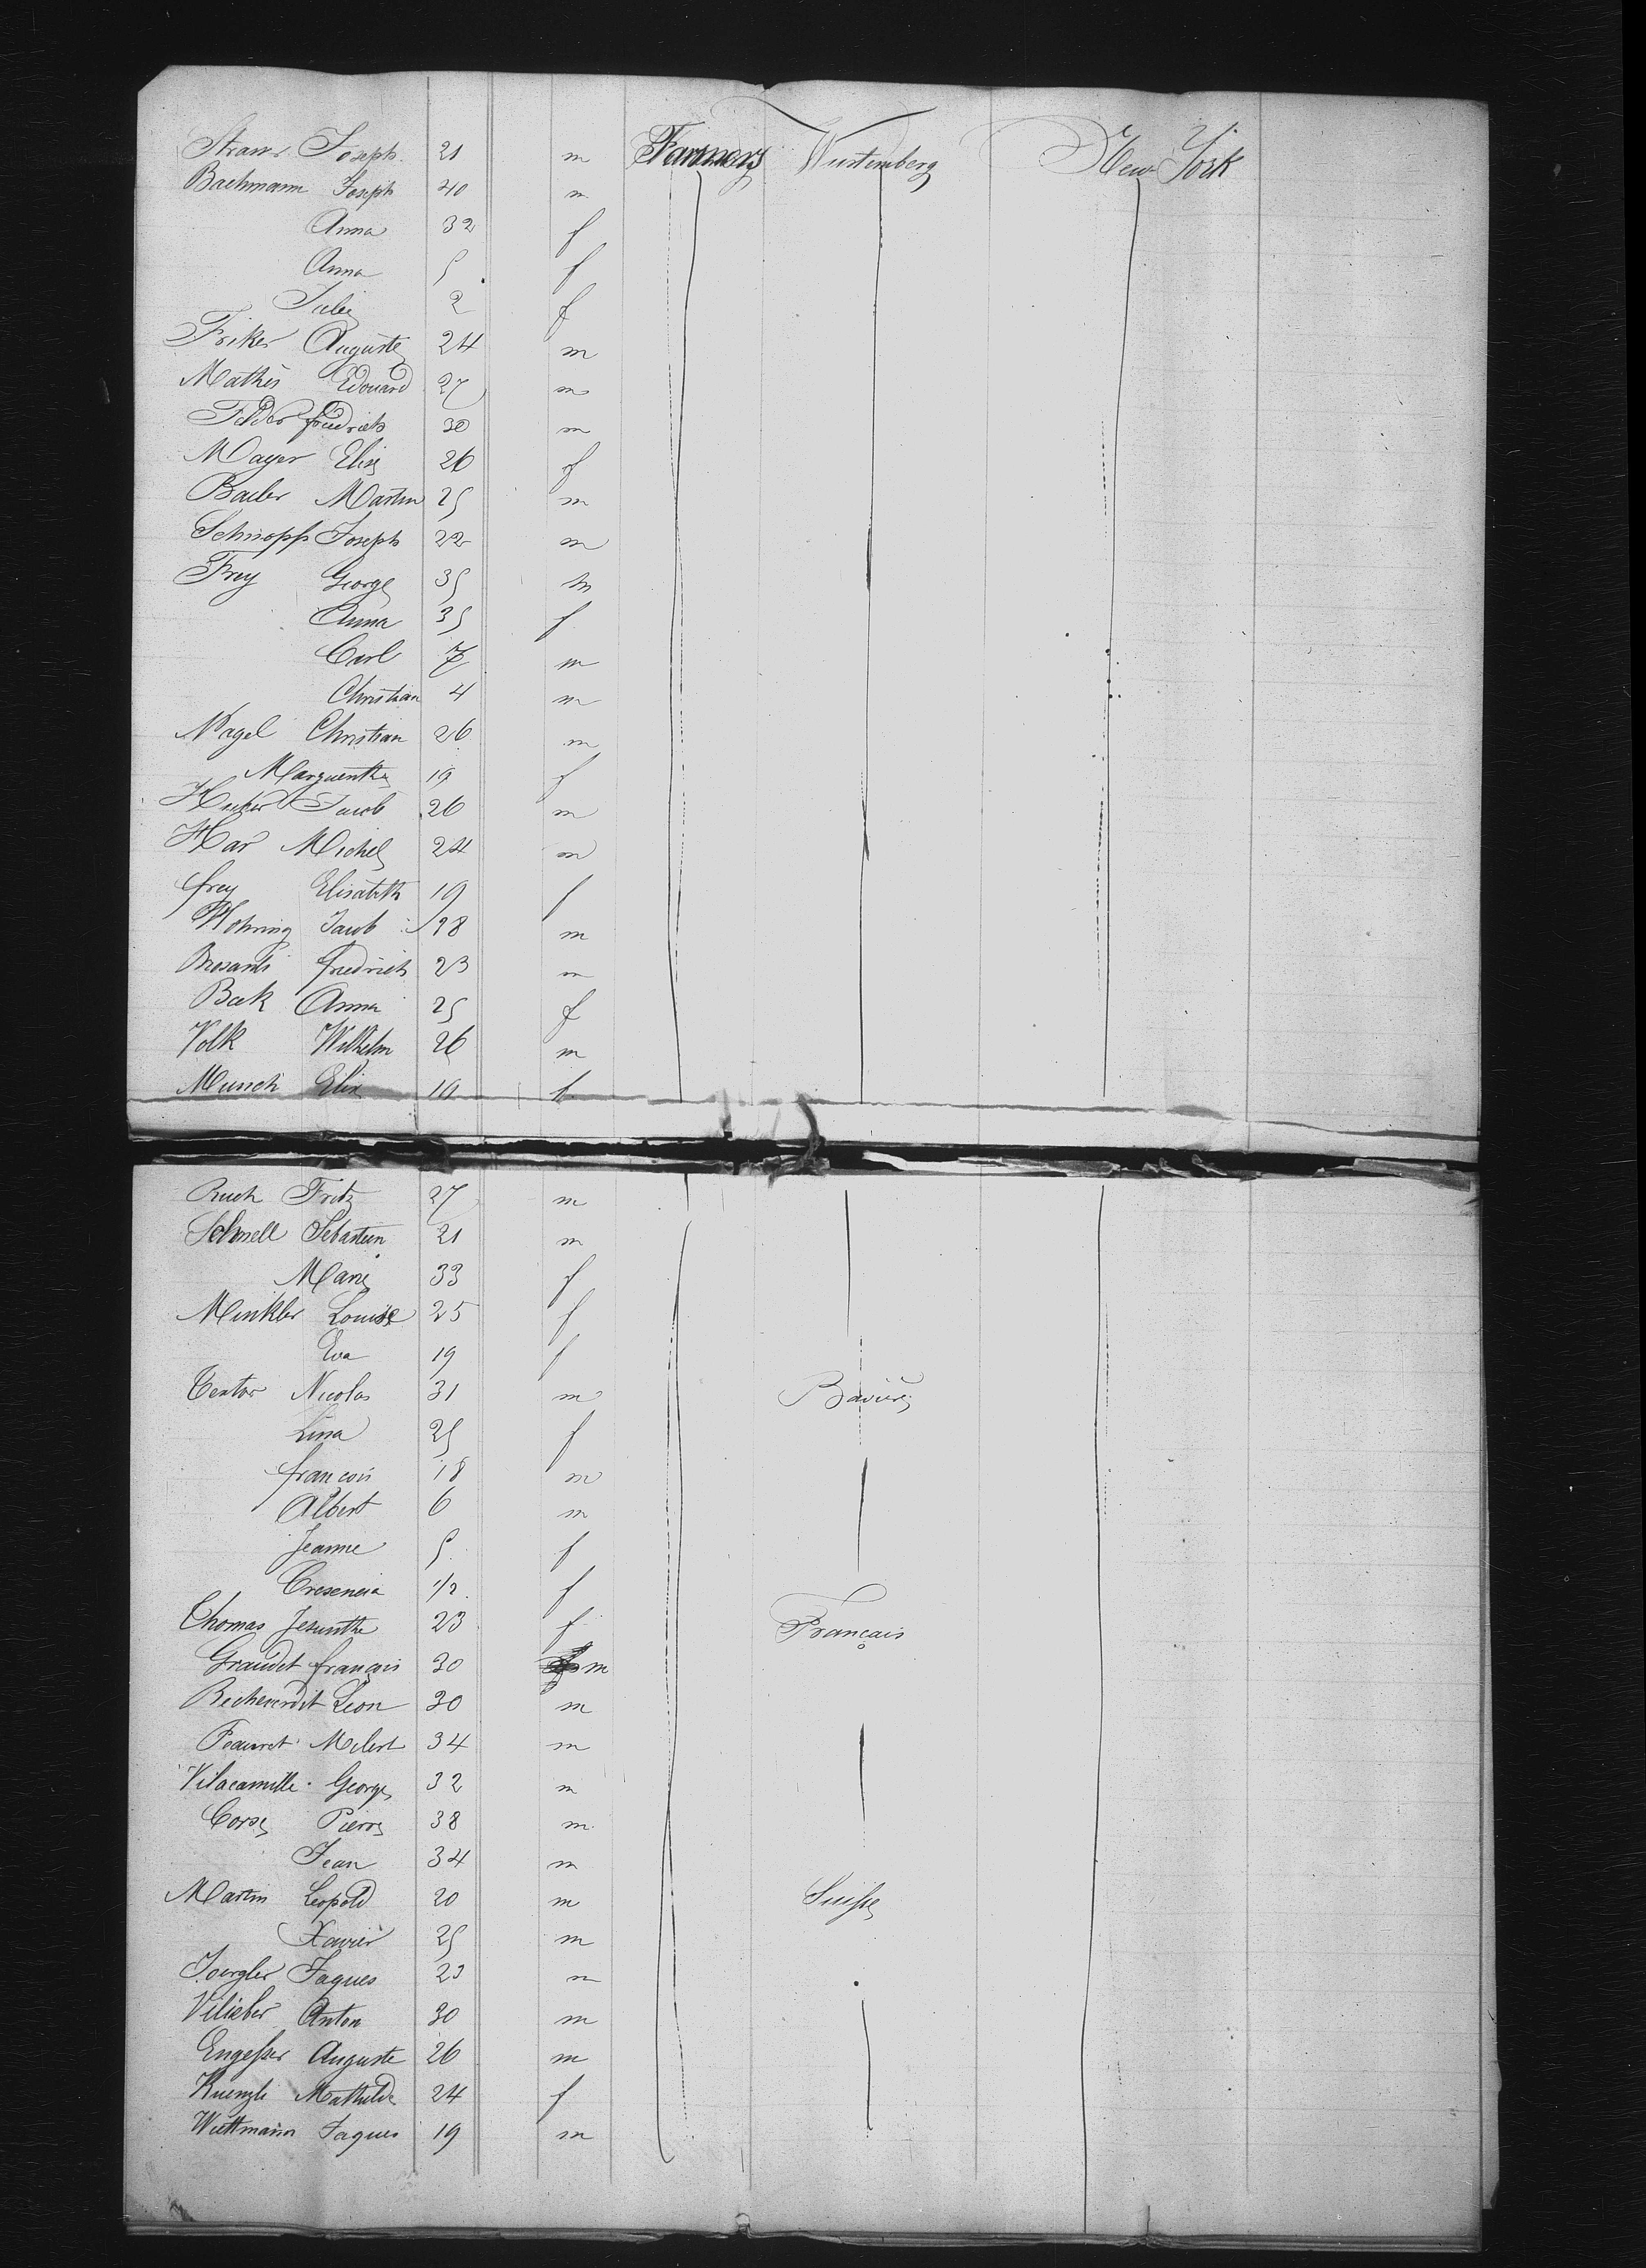 Straus Joseph 21 m Farmers Wurtemberg New York
Bachmann Joseph 40 m
Anna 32 f
Anna 5 f
Julie 2 f
Friker Auguste 24 m
Mathis Edouard 27 m
Felder friedrich 30 m
Mayer Elise 26 f
Bader Martin 25 m
Schnopp Joseph 22 m
Frey George 35 m
Anna 35 f
Carl 7 m
Christian 4 m
Nagel Christian 26 m
Marguerithe 19 f
Jacob 26 m
Har Michel 24 m
frey Elisabeth 19 f
Wohring Jacob 28 m
friedrich 23 m
Beck Anna 25 f
Volk Wilhelm 26 m
Munch Elise 19 f
Ruch Fritz 27 m
Schnell Sebastien 21 m
Marie 33 f
Minkler Louise 25 f
Eva 19 f
Textor Nicolas 31 m Baviere
Lina 25 f
francois 18 m
Albert 6 m
Jeanne 5 f
Cresencia 1/2 f
Thomas Jesunthe 23 f Français
Graudet françois 30 m
Leon 30 m
34 m
Vilacamille George 32 m
Corse Pierre 38 m
Jean 34 m
Martin Leopold 20 m Suisse
Xavier 25 m
Joergler Jaques 23 m
Vilieber Anton 30 m
Engesser Auguste 26 m
Kuenzli Mathilde 24 f
Wittmann Jaques 19 m